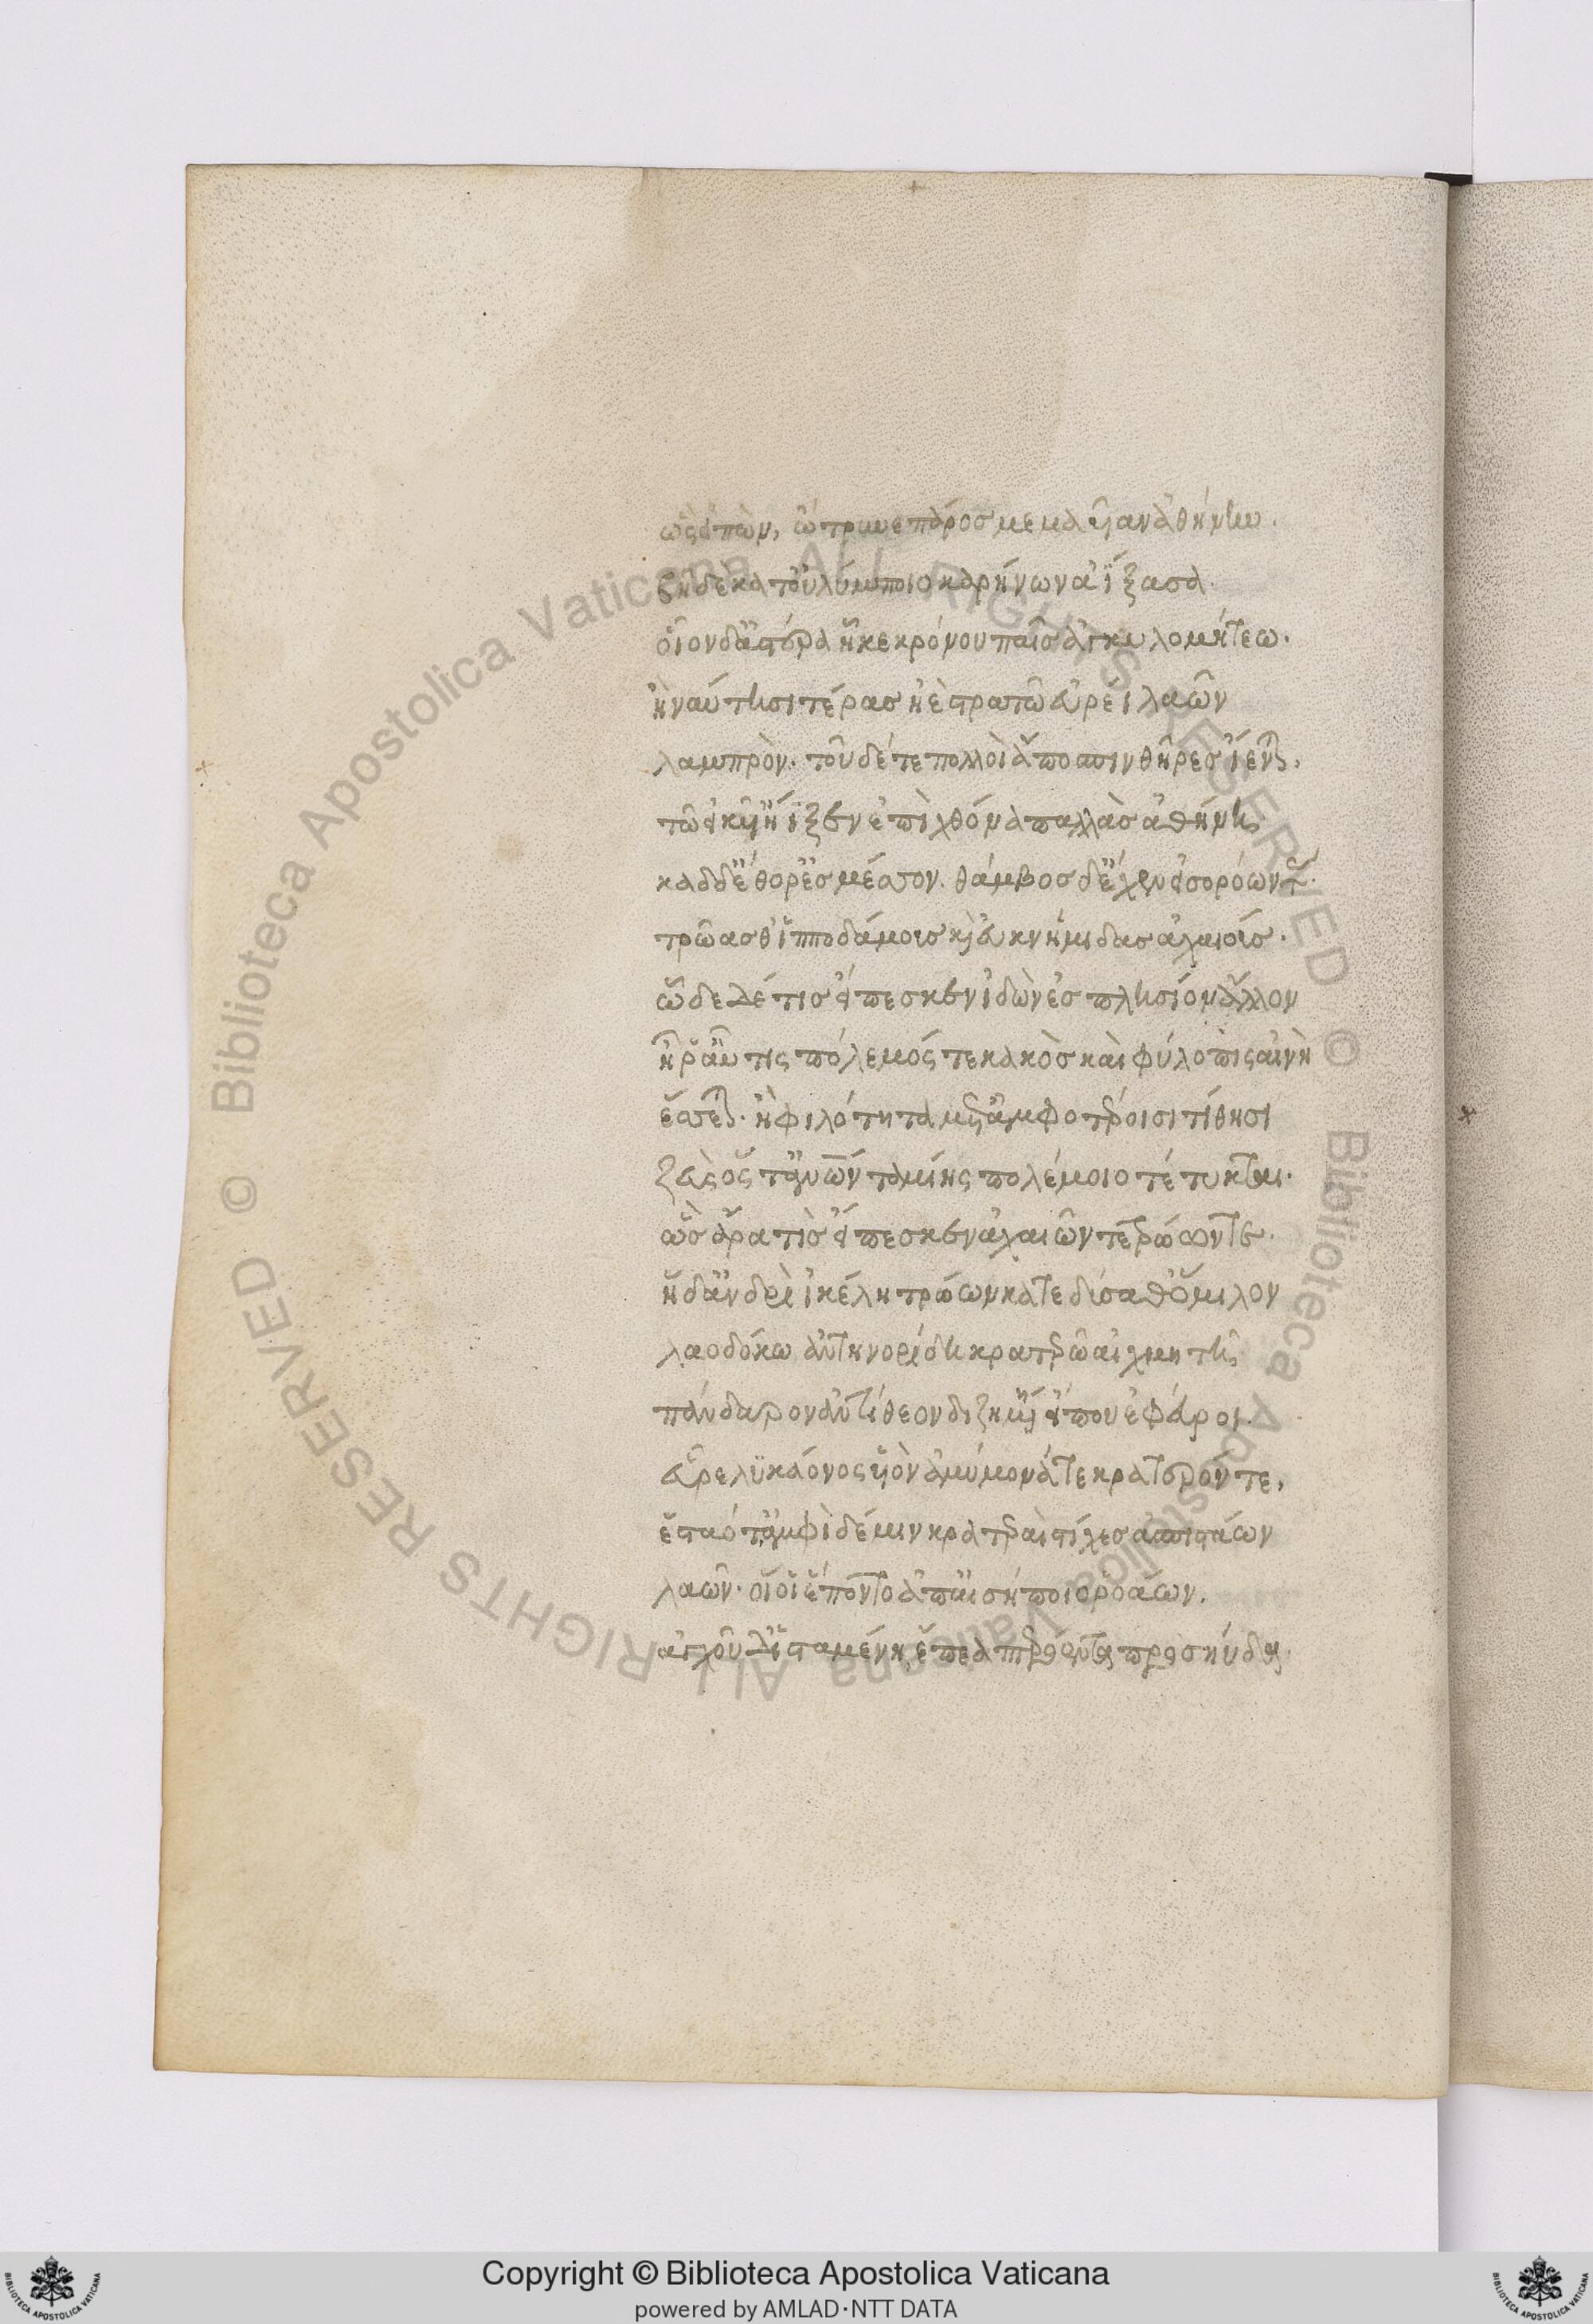 ὣς εἰπὼν, ὤτρυνε πάρος μεμαυῖαν ἀθήνην.
βῆ δὲ κατ' οὐλύμποιο καρήνων ἀΐξασα.
οἷον δ' ἀστέρα ἧκε κρόνου παῖς ἀγκυλομήτεω.
ἢ ναύτησι τέρας ἠὲ στρατῶ εὐρέϊ λαῶν
λαμπρὸν. τοῦ δέ τε πολλοὶ ἀπὸ σπινθῆρες ἵενται,
τῶ εἰκυῖ' ἤϊξεν ἐπὶ χθόνα παλλὰς ἀθήνη
καδ δ' ἔθορ' ἐς μέσσον. θάμβος δ' ἔχεν εἰσορόωντας.
τρῶάς θ' ἱπποδάμους καὶ ἐϋκνήμιδας ἀχαιούς.
ὧδε δέ τις εἴπεσκεν ἰδὼν ἐς πλησίον ἄλλον
ἦ ῥ' αὖτις πόλεμός τε κακὸς καὶ φύλοπις αἰνὴ
ἔσσεται. ἢ φιλότητα μετ' ἀμφοτέροισι τίθησι
ζεὺς ὅς τ' ἀνθρώπων ταμίης πολέμοιο τέτυκται.
ὣς ἄρα τις εἴπεσκεν ἀχαιῶν τε τρώων τε.
ἣ δ' ἀνδρὶ ἰκέλη τρώων κατεδύσαθ' ὅμιλον
λαοδόκω ἀντηνορίδη κρατερῶ αἰχμητῆ
πάνδαρον ἀντίθεον διζημένη εἴ που ἐφεύροι.
εὗρε λυκάονος υἱὸν ἀμύμονά τε κρατερόν τε,
ἑσταότ' ἀμφὶ δέ μιν κρατεραὶ στίχες ἀσπιστάων
λαῶν. οἵ οἱ ἕποντο ἀπ' αἰσήποιο ῥοάων.
ἀγχοῦ δ' ἱσταμένη ἔπεα πτερόεντα προσηύδα
Copyright © Biblioteca Apostolica Vaticana
powered by AMLAD·NTT DATA